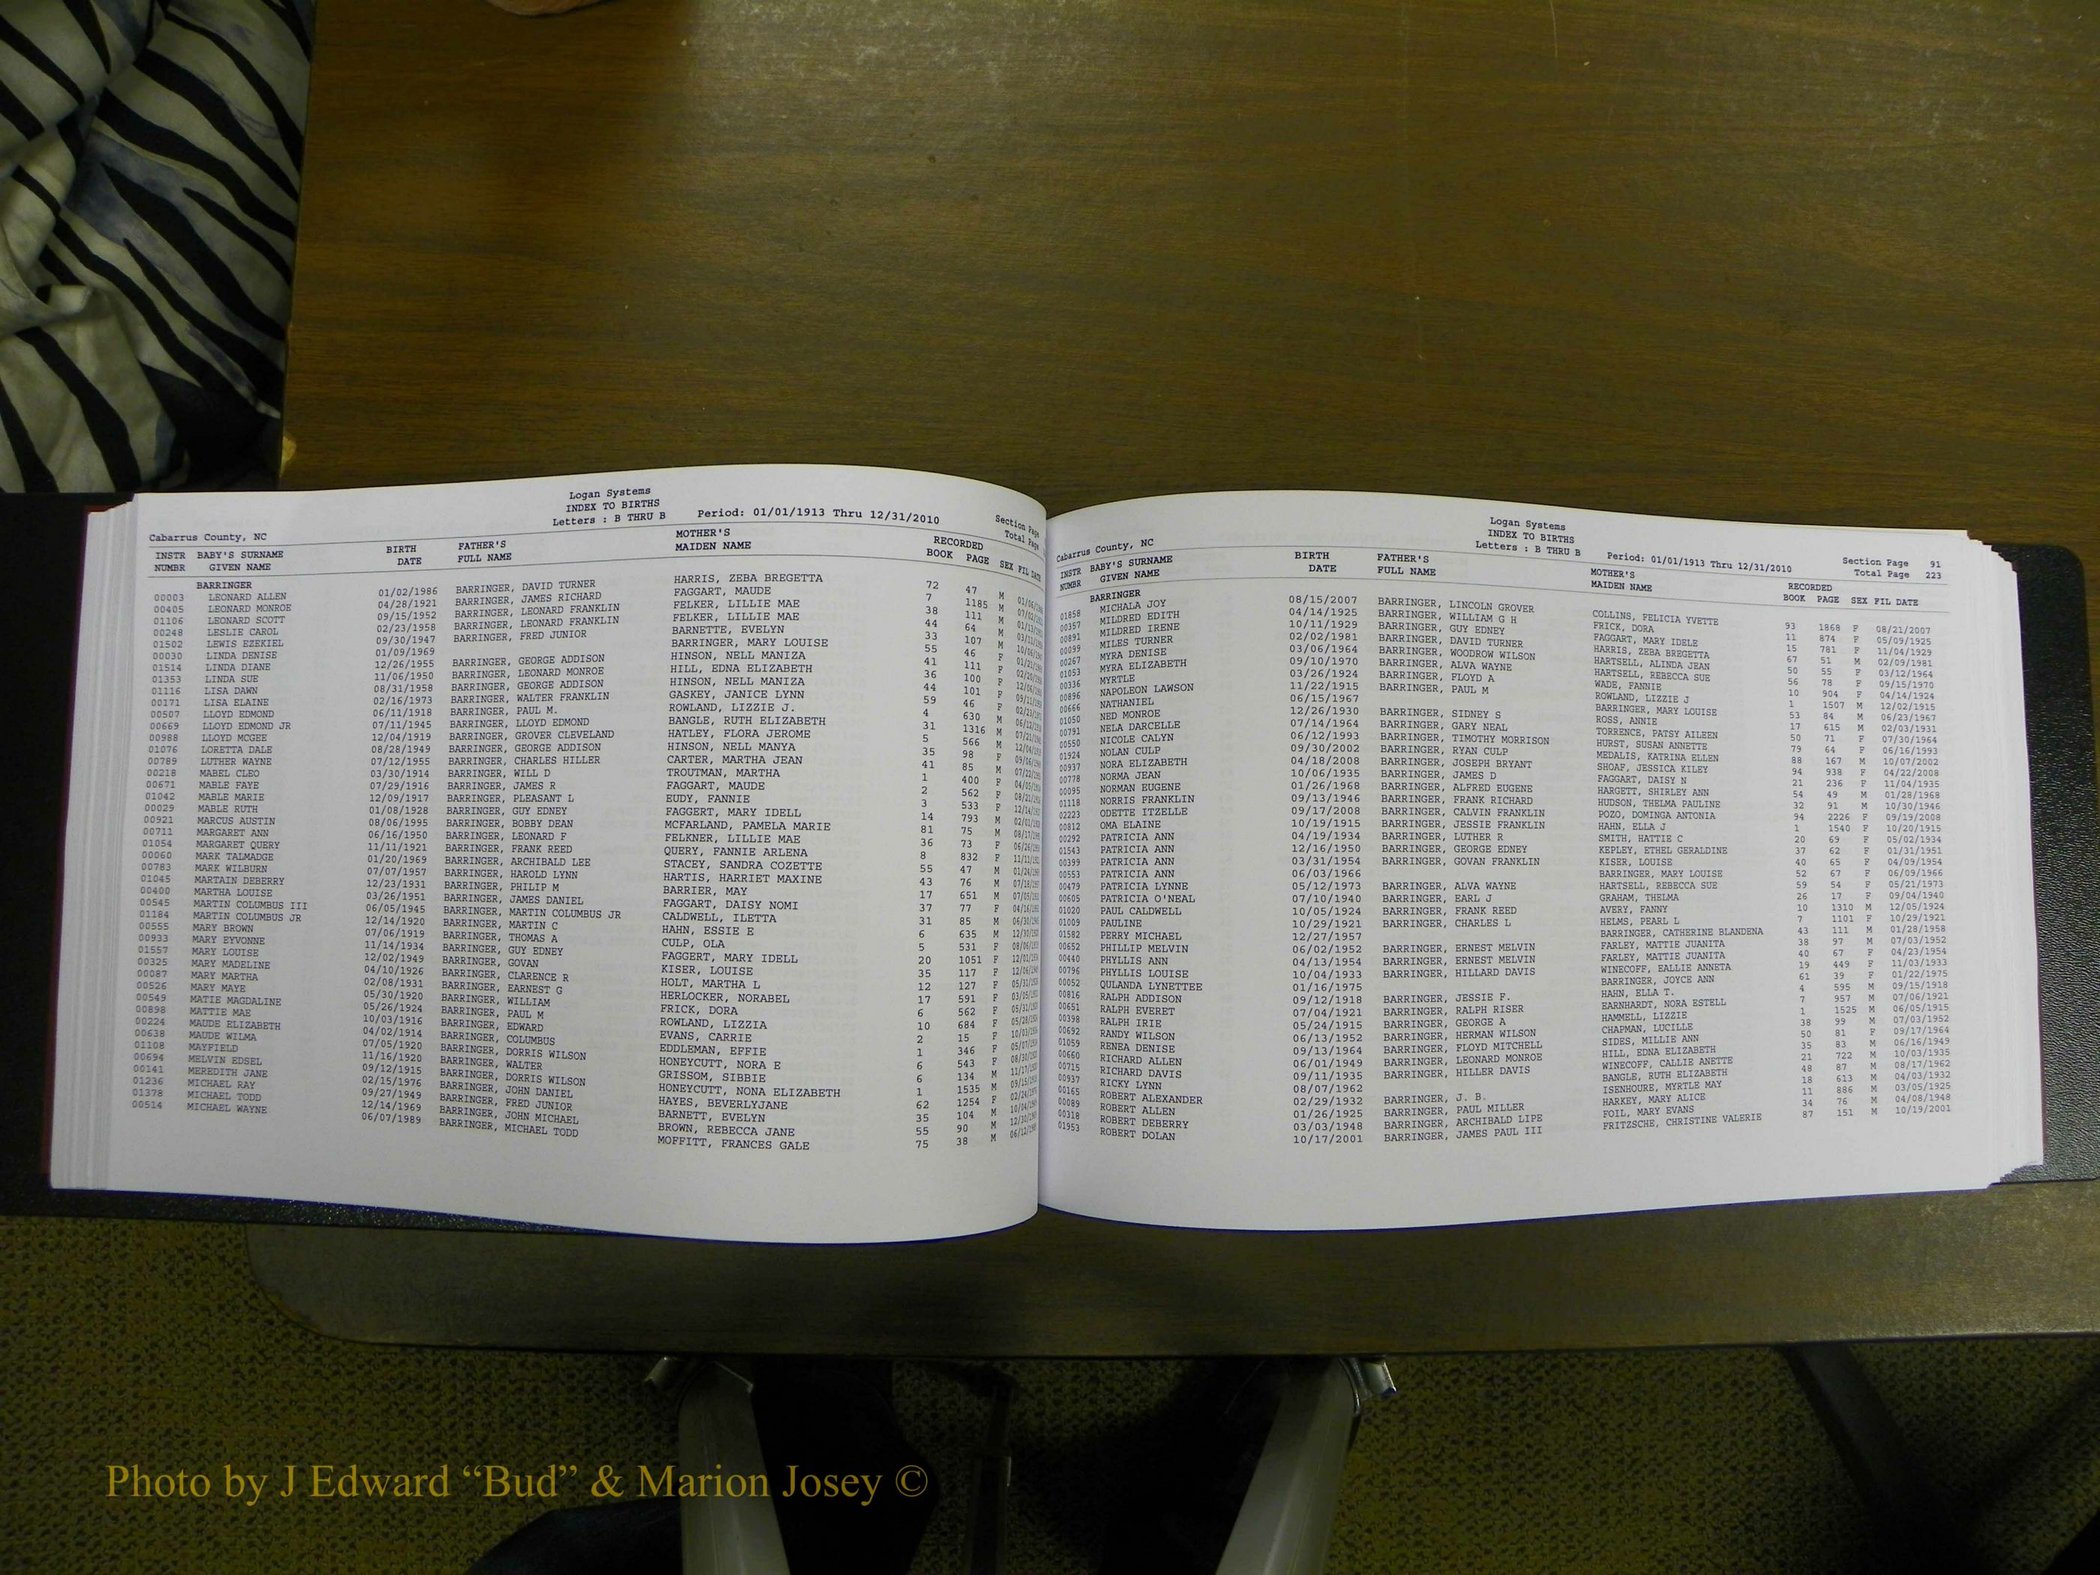 Logan Systems
INDEX TO BIRTHS
Letters : B THRU B Period: 01/01/1913 Thru 12/31/2010
Section Page
Total Page
Cabarrus County, NC
INSTR BABY'S SURNAME BIRTH FATHER'S MOTHER'S RECORDED
NUMBR GIVEN NAME DATE FULL NAME MAIDEN NAME BOOK PAGE SEX FIL DATE
BARRINGER
00003 LEONARD ALLEN 01/02/1986 BARRINGER, DAVID TURNER HARRIS, ZEBA BREGETTA 72 47 M
00405 LEONARD MONROE 04/28/1921 BARRINGER, JAMES RICHARD FAGGART, MAUDE 7 1185 M
01106 LEONARD SCOTT 09/15/1952 BARRINGER, LEONARD FRANKLIN FELKER, LILLIE MAE 38 111 M
00248 LESLIE CAROL 02/23/1958 BARRINGER, LEONARD FRANKLIN FELKER, LILLIE MAE 44 64 F
01502 LEWIS EZEKIEL 09/30/1947 BARRINGER, FRED JUNIOR BARNETTE, EVELYN 33 107 M
00030 LINDA DENISE 01/09/1969 BARRINGER, MARY LOUISE 55 46 F
01514 LINDA DIANE 12/26/1955 BARRINGER, GEORGE ADDISON HINSON, NELL MANIZA 41 111 F
01353 LINDA SUE 11/06/1950 BARRINGER, LEONARD MONROE HILL, EDNA ELIZABETH 36 100 F
01116 LISA DAWN 08/31/1958 BARRINGER, GEORGE ADDISON HINSON, NELL MANIZA 44 101 F
00171 LISA ELAINE 02/16/1973 BARRINGER, WALTER FRANKLIN GASKEY, JANICE LYNN 59 46 F
00507 LLOYD EDMOND 06/11/1918 BARRINGER, PAUL M. ROWLAND, LIZZIE J. 4 630 M
00669 LLOYD EDMOND JR 07/11/1945 BARRINGER, LLOYD EDMOND BANGLE, RUTH ELIZABETH 31 1316 M
00988 LLOYD MCGEE 12/04/1919 BARRINGER, GROVER CLEVELAND HATLEY, FLORA JEROME 5 566 M
01076 LORETTA DALE 08/28/1949 BARRINGER, GEORGE ADDISON HINSON, NELL MANYA 35 98 F
00789 LUTHER WAYNE 07/12/1955 BARRINGER, CHARLES HILLER CARTER, MARTHA JEAN 41 85 M
00218 MABEL CLEO 03/30/1914 BARRINGER, WILL D TROUTMAN, MARTHA 1 400 F
00671 MABLE FAYE 07/29/1916 BARRINGER, JAMES R FAGGART, MAUDE 2 562 F
01042 MABLE MARIE 12/09/1917 BARRINGER, PLEASANT L EUDY, FANNIE 3 533 F
00029 MABLE RUTH 01/08/1928 BARRINGER, GUY EDNEY FAGGERT, MARY IDELL 14 793 F
00921 MARCUS AUSTIN 08/06/1995 BARRINGER, BOBBY DEAN MCFARLAND, PAMELA MARIE 81 75 M
00711 MARGARET ANN 06/16/1950 BARRINGER, LEONARD F FELKNER, LILLIE MAE 36 73 F
01054 MARGARET QUERY 11/11/1921 BARRINGER, FRANK REED QUERY, FANNIE ARLENA 8 832 F
00060 MARK TALMADGE 01/20/1969 BARRINGER, ARCHIBALD LEE STACEY, SANDRA COZETTE 55 47 M
00783 MARK WILBURN 07/07/1957 BARRINGER, HAROLD LYNN HARTIS, HARRIET MAXINE 43 76 M
01045 MARTAIN DEBERRY 12/23/1931 BARRINGER, PHILIP M BARRIER, MAY 17 651 M
00400 MARTHA LOUISE 03/26/1951 BARRINGER, JAMES DANIEL FAGGART, DAISY NOMI 37 77 F
00545 MARTIN COLUMBUS III 06/05/1945 BARRINGER, MARTIN COLUMBUS JR CALDWELL, ILETTA 31 85 M
01184 MARTIN COLUMBUS JR 12/14/1920 BARRINGER, MARTIN C HAHN, ESSIE E 6 635 M
00555 MARY BROWN 07/06/1919 BARRINGER, THOMAS A CULP, OLA 5 531 F
00933 MARY EYVONNE 11/14/1934 BARRINGER, GUY EDNEY FAGGERT, MARY IDELL 20 1051 F
01557 MARY LOUISE 12/02/1949 BARRINGER, GOVAN KISER, LOUISE 35 117 F
00325 MARY MADELINE 04/10/1926 BARRINGER, CLARENCE R HOLT, MARTHA L 12 127 F
00087 MARY MARTHA 02/08/1931 BARRINGER, EARNEST G HERLOCKER, NORABEL 17 591 F
00526 MARY MAYE 05/30/1920 BARRINGER, WILLIAM FRICK, DORA 6 562 F
00549 MATIE MAGDALINE 05/26/1924 BARRINGER, PAUL M ROWLAND, LIZZIA 10 684 F
00898 MATTIE MAE 10/03/1916 BARRINGER, EDWARD EVANS, CARRIE 2 15 F
00224 MAUDE ELIZABETH 04/02/1914 BARRINGER, COLUMBUS EDDLEMAN, EFFIE 1 346 F
00638 MAUDE WILMA 07/05/1920 BARRINGER, DORRIS WILSON HONEYCUTT, NORA E 6 543 F
01108 MAYFIELD 11/16/1920 BARRINGER, WALTER GRISSOM, SIBBIE 6 134 M
00694 MELVIN EDSEL 09/12/1915 BARRINGER, DORRIS WILSON HONEYCUTT, NONA ELIZABETH 1 1535 M
00141 MEREDITH JANE 02/15/1976 BARRINGER, JOHN DANIEL HAYES, BEVERLYJANE 62 1254 F
01236 MICHAEL RAY 09/27/1949 BARRINGER, FRED JUNIOR BARNETT, EVELYN 35 104 M
01378 MICHAEL TODD 12/14/1969 BARRINGER, JOHN MICHAEL BROWN, REBECCA JANE 55 90 M
00514 MICHAEL WAYNE 06/07/1989 BARRINGER, MICHAEL TODD MOFFITT, FRANCES GALE 75 38 M
Logan Systems
INDEX TO BIRTHS
Letters : B THRU B Period: 01/01/1913 Thru 12/31/2010
Section Page 91
Total Page 223
Cabarrus County, NC
INSTR BABY'S SURNAME BIRTH FATHER'S MOTHER'S RECORDED
NUMBR GIVEN NAME DATE FULL NAME MAIDEN NAME BOOK PAGE SEX FIL DATE
BARRINGER
01858 MICHALA JOY 08/15/2007 BARRINGER, LINCOLN GROVER COLLINS, FELICIA YVETTE 93 1868 F 08/21/2007
00357 MILDRED EDITH 04/14/1925 BARRINGER, WILLIAM G H FRICK, DORA 11 874 F 05/09/1925
00891 MILDRED IRENE 10/11/1929 BARRINGER, GUY EDNEY FAGGART, MARY IDELE 15 781 F 11/04/1929
00099 MILES TURNER 02/02/1981 BARRINGER, DAVID TURNER HARRIS, ZEBA BREGETTA 67 51 M 02/09/1981
00267 MYRA DENISE 03/06/1964 BARRINGER, WOODROW WILSON HARTSELL, ALINDA JEAN 50 55 F 03/12/1964
01053 MYRA ELIZABETH 09/10/1970 BARRINGER, ALVA WAYNE HARTSELL, REBECCA SUE 56 78 F 09/15/1970
00336 MYRTLE 03/26/1924 BARRINGER, FLOYD A WADE, FANNIE 10 904 F 04/14/1924
00896 NAPOLEON LAWSON 11/22/1915 BARRINGER, PAUL M ROWLAND, LIZZIE J 1 1507 M 12/02/1915
00666 NATHANIEL 06/15/1967 BARRINGER, MARY LOUISE 53 84 M 06/23/1967
01050 NED MONROE 12/26/1930 BARRINGER, SIDNEY S ROSS, ANNIE 17 615 M 02/03/1931
00791 NELA DARCELLE 07/14/1964 BARRINGER, GARY NEAL TORRENCE, PATSY AILEEN 50 71 F 07/30/1964
00550 NICOLE CALYN 06/12/1993 BARRINGER, TIMOTHY MORRISON HURST, SUSAN ANNETTE 79 64 F 06/16/1993
01924 NOLAN CULP 09/30/2002 BARRINGER, RYAN CULP MEDALIS, KATRINA ELLEN 88 167 M 10/07/2002
00937 NORA ELIZABETH 04/18/2008 BARRINGER, JOSEPH BRYANT SHOAF, JESSICA KILEY 94 938 F 04/22/2008
00778 NORMA JEAN 10/06/1935 BARRINGER, JAMES D FAGGART, DAISY N 21 236 F 11/04/1935
00095 NORMAN EUGENE 01/26/1968 BARRINGER, ALFRED EUGENE HARGETT, SHIRLEY ANN 54 49 M 01/28/1968
01118 NORRIS FRANKLIN 09/13/1946 BARRINGER, FRANK RICHARD HUDSON, THELMA PAULINE 32 91 M 10/30/1946
02223 ODETTE ITZELLE 09/17/2008 BARRINGER, CALVIN FRANKLIN POZO, DOMINGA ANTONIA 94 2226 F 09/19/2008
00812 OMA ELAINE 10/19/1915 BARRINGER, JESSIE FRANKLIN HAHN, ELLA J 1 1540 F 10/20/1915
00292 PATRICIA ANN 04/19/1934 BARRINGER, LUTHER R SMITH, HATTIE C 20 69 F 05/02/1934
01543 PATRICIA ANN 12/16/1950 BARRINGER, GEORGE EDNEY KEPLEY, ETHEL GERALDINE 37 62 F 01/31/1951
00399 PATRICIA ANN 03/31/1954 BARRINGER, GOVAN FRANKLIN KISER, LOUISE 40 65 F 04/09/1954
00553 PATRICIA ANN 06/03/1966 BARRINGER, MARY LOUISE 52 67 F 06/09/1966
00479 PATRICIA LYNNE 05/12/1973 BARRINGER, ALVA WAYNE HARTSELL, REBECCA SUE 59 54 F 05/21/1973
00605 PATRICIA O'NEAL 07/10/1940 BARRINGER, EARL J GRAHAM, THELMA 26 17 F 09/04/1940
01020 PAUL CALDWELL 10/05/1924 BARRINGER, FRANK REED AVERY, FANNY 10 1310 M 12/05/1924
01009 PAULINE 10/29/1921 BARRINGER, CHARLES L HELMS, PEARL L 7 1101 F 10/29/1921
01582 PERRY MICHAEL 12/27/1957 BARRINGER, CATHERINE BLANDENA 43 111 M 01/28/1958
00652 PHILLIP MELVIN 06/02/1952 BARRINGER, ERNEST MELVIN FARLEY, MATTIE JUANITA 38 97 M 07/03/1952
00440 PHYLLIS ANN 04/13/1954 BARRINGER, ERNEST MELVIN FARLEY, MATTIE JUANITA 40 67 F 04/23/1954
00796 PHYLLIS LOUISE 10/04/1933 BARRINGER, HILLARD DAVIS WINECOFF, EALLIE ANNETA 19 449 F 11/03/1933
00052 QULANDA LYNETTEE 01/16/1975 BARRINGER, JOYCE ANN 61 39 F 01/22/1975
00816 RALPH ADDISON 09/12/1918 BARRINGER, JESSIE F. HAHN, ELLA T. 4 595 M 09/15/1918
00651 RALPH EVERET 07/04/1921 BARRINGER, RALPH RISER EARNHARDT, NORA ESTELL 7 957 M 07/06/1921
00398 RALPH IRIE 05/24/1915 BARRINGER, GEORGE A HAMMELL, LIZZIE 1 1525 M 06/05/1915
00692 RANDY WILSON 06/13/1952 BARRINGER, HERMAN WILSON CHAPMAN, LUCILLE 38 99 M 07/03/1952
01059 RENEA DENISE 09/13/1964 BARRINGER, FLOYD MITCHELL SIDES, MILLIE ANN 50 81 F 09/17/1964
00660 RICHARD ALLEN 06/01/1949 BARRINGER, LEONARD MONROE HILL, EDNA ELIZABETH 35 83 M 06/16/1949
00715 RICHARD DAVIS 09/11/1935 BARRINGER, HILLER DAVIS WINECOFF, CALLIE ANETTE 21 722 M 10/03/1935
00937 RICKY LYNN 08/07/1962 BANGLE, RUTH ELIZABETH 48 87 M 08/17/1962
00165 ROBERT ALEXANDER 02/29/1932 BARRINGER, J. B. ISENHOURE, MYRTLE MAY 18 613 M 04/03/1932
00089 ROBERT ALLEN 01/26/1925 BARRINGER, PAUL MILLER HARKEY, MARY ALICE 11 886 M 03/05/1925
00318 ROBERT DEBERRY 03/03/1948 BARRINGER, ARCHIBALD LIPE FOIL, MARY EVANS 34 76 M 04/08/1948
01953 ROBERT DOLAN 10/17/2001 BARRINGER, JAMES PAUL III FRITZSCHE, CHRISTINE VALERIE 87 151 M 10/19/2001
Photo by J Edward “Bud” & Marion Josey ©